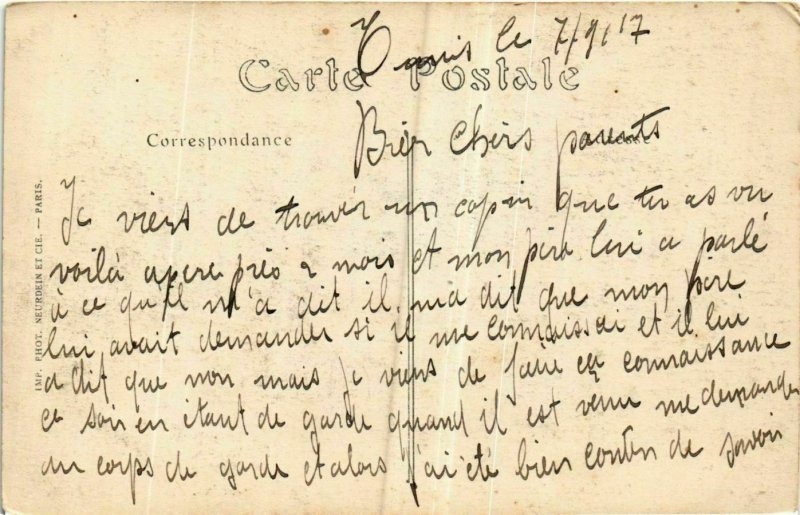 Tunis le 7/9/17
Carte Postale
Correspondance
Bien Chers parents
Je viens de trouver un copin que tu as vu
voilà apere près 2 mois et mon père lui a parlé
à ce qu'il m'a dit il ma dit que mon père
lui avait demander si il me connaissai et il lui
a dit que non mais je viens de faire ça connaissance
ce soir en étant de garde quand il est venu me demander
au corps de garde et alors j'ai été bien conten de savoir
IMP. PHOT. NEURDEIN ET CIE. — PARIS.